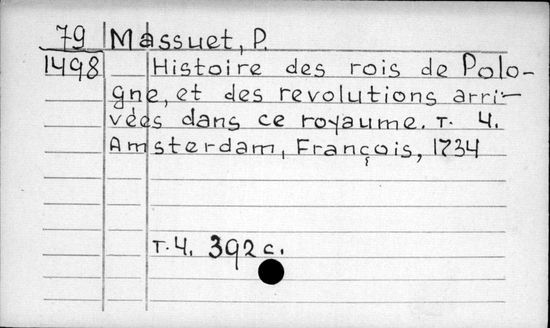 79 Massuet, P.
1498 Histoire des rois de Polo-
gne, et des revolutions arri-
vées dans ce royaume. т. 4.
Amsterdam, François, 1734
т. 4. 392 с.